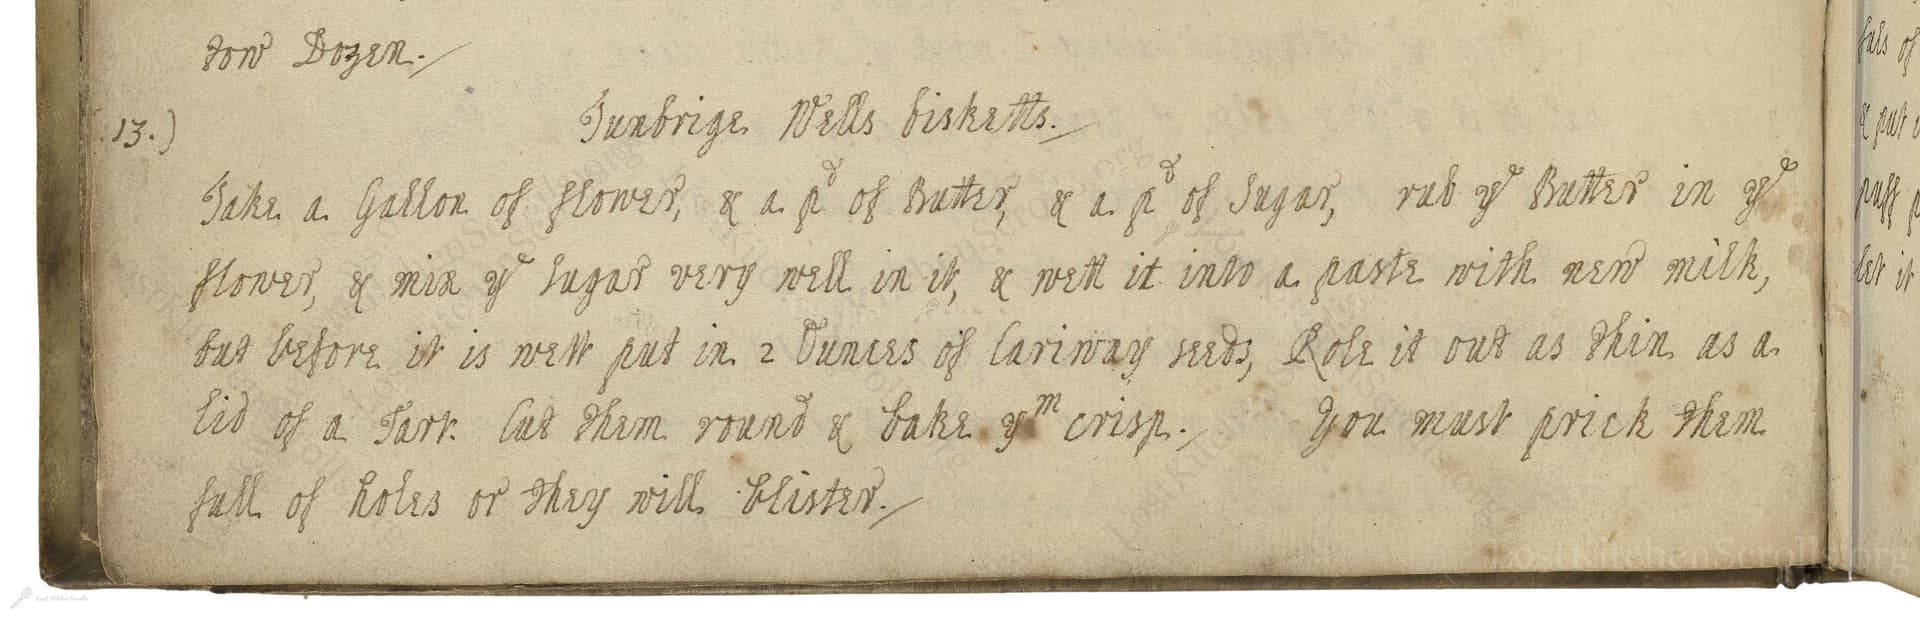 tow Dozen.
13.) Tunbrige Wells bisketts.
Take a Gallon of flower, & a pd of Butter, & a pd of Sugar, rub ye Butter in ye
flower, & mix ye sugar very well in it, & wett it into a paste with new milk,
but before it is wett put in 2 Ounces of Cariway seeds, Role it out as thin as a
lid of a Tart. Cut them round & bake ym crisp. You must prick them
full of holes or they will blister.
fuls of
& put
puff
let it
LostKitchenScrolls.org
Lost Kitchen Scrolls